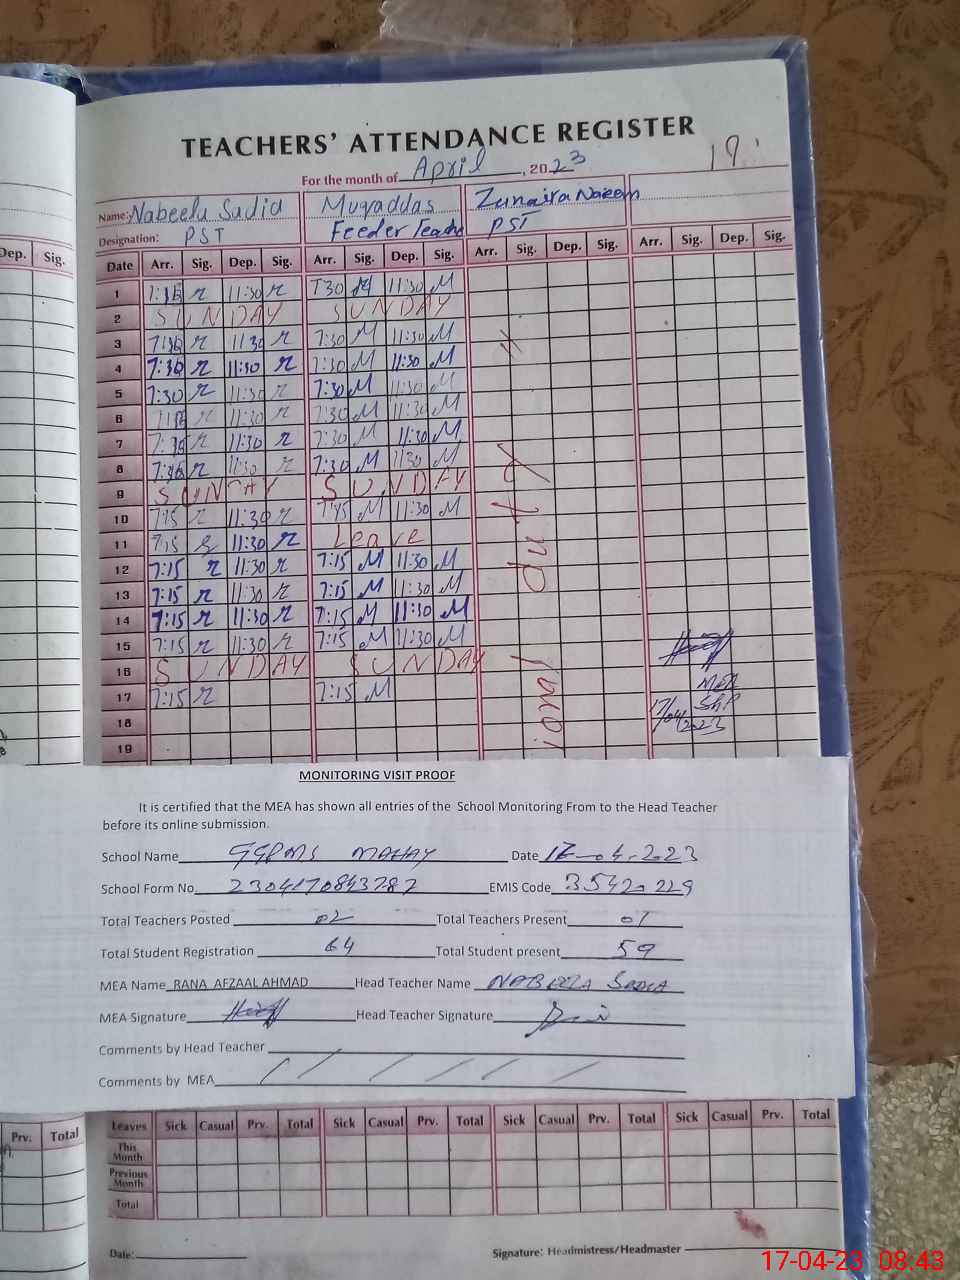 TEACHERS' ATTENDANCE REGISTER
For the month of April, 2023
19
Name: Nabeela Sadia Muqaddas Zunaira Naeem
Designation: PST Feeder Teache PST
Dep. Sig. Date Arr. Sig. Dep. Sig. Arr. Sig. Dep. Sig. Arr. Sig. Dep. Sig. Arr. Sig. Dep. Sig.
1 11:30 11:30 M
2 SUNDAY SUNDAY
3 7:30 M 11:30 M
4 7:30 11:30 7:30 M 11:30 M
5 7:30 11:30 7:30 M 11:30 M
6 11:30 7:30 M 11:30 M
7 11:30 7:30 M 11:30 M
8 11:30 7:30 M 11:30 M
9 SUNDAY SUNDAY
10 7:15 11:30 M 11:30 M
11 7:15 11:30 Leave
12 7:15 11:30 7:15 M 11:30 M
13 7:15 11:30 7:15 M 11:30 M
14 7:15 11:30 7:15 M 11:30 M
15 7:15 11:30 7:15 M 11:30 M
16 SUNDAY SUNDAY
17 7:15 7:15 M
MEA
17/04/2023
18
19
MONITORING VISIT PROOF
It is certified that the MEA has shown all entries of the School Monitoring From to the Head Teacher
before its online submission.
School Name GGPMS MAHAY Date 17-04-2023
School Form No 2304170843787 EMIS Code 35420229
Total Teachers Posted 02 Total Teachers Present 01
Total Student Registration 64 Total Student present 59
MEA Name RANA AFZAAL AHMAD Head Teacher Name NABEELA SADIA
MEA Signature Head Teacher Signature
Comments by Head Teacher
Comments by MEA
Prv. Total Leaves Sick Casual Prv. Total Sick Casual Prv. Total Sick Casual Prv. Total Sick Casual Prv. Total
This Month
Previous Month
Total
Date: Signature: Headmistress/Headmaster
17-04-23 08:43